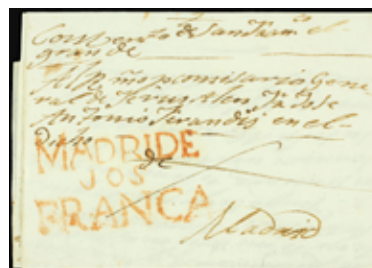 Convento de San Fran.co el
grande
Al R.mo p comisario Gene
ral de Jerusalen, fr Jose
Antonio en el
dicho
de
MADRIDE
JOS
FRANCA
Madrid